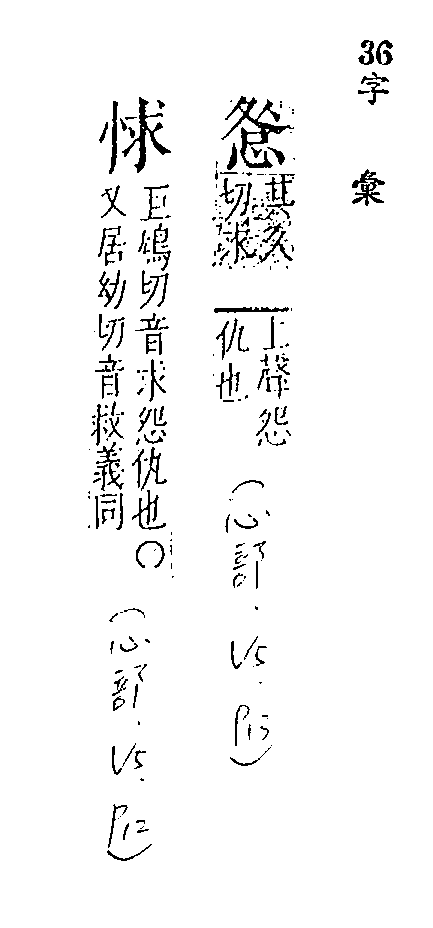 36
字彙
慦
其久
切求
上聲怨
仇也
(心部.V5.P13)
㤹
巨鳩切音求怨仇也○
又居幼切音救義同
(心部.V5.P12)